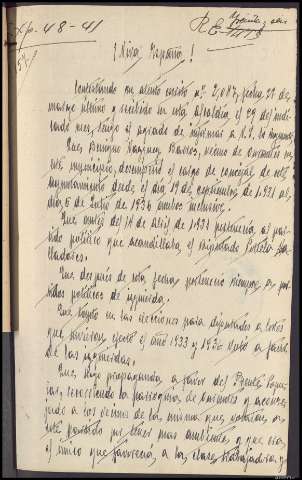 Exp. 48-41
¡Viva España!
Contestando su atento escrito nº 2,087, fecha 21 de
marzo último y recibido en esta alcaldía el 29 del indi-
cado mes, tengo el agrado de informar a V.S. lo siguiente:
Que, Benigno Vazquez Barros, vecino de
este municipio, desempeñó el cargo de concejal de este
Ayuntamiento desde el día 19 de septiembre de 1931 al
día 5 de Julio de 1936 ambos inclusive.
Que antes del 14 de Abril de 1931 pertenecía, al par-
tido político que acaudillaba, el exdiputado
Que después de esta, fecha perteneció siempre a par-
tidos políticos de izquierda.
Que tanto en las elecciones para diputados a Cortes
que tuvieron efecto el año 1933 y 1936 votó a favor
de las izquierdas.
Que, hizo propaganda a favor del Frente Popu-
lar, recorriendo la parroquia de y aconse-
jando a los vecinos de la misma que votaran, a
este partido por tener más ambiente, y que era,
el único que favorecía, a la, clase trabajadora y